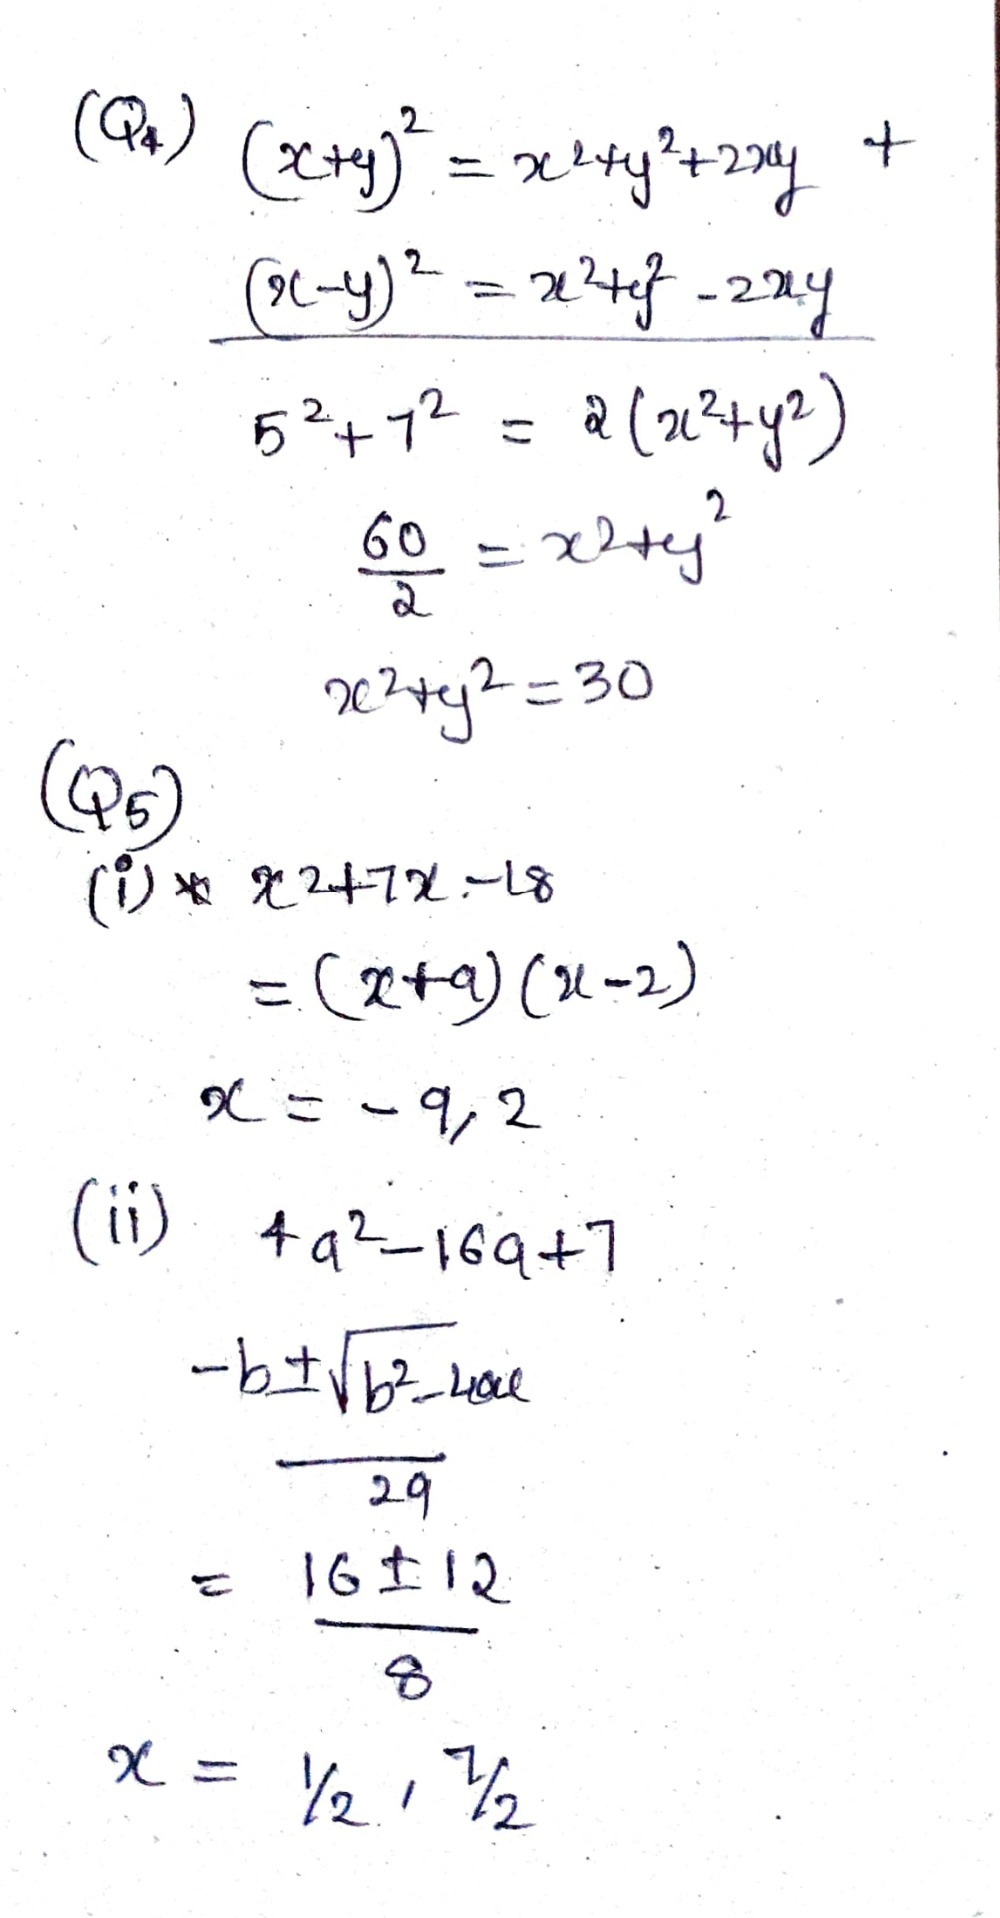 (Q4) (x+y)² = x²+y²+2xy +
(x-y)² = x²+y² -2xy
5²+7² = 2(x²+y²)
60/2 = x²+y²
x²+y² = 30
(Q5)
(i) x2+7x-18
= (x+9)(x-2)
x = -9, 2
(ii) 4a²-16a+7
-b±√b²-4ac
2a
= 16 ± 12
8
x = 1/2, 7/2